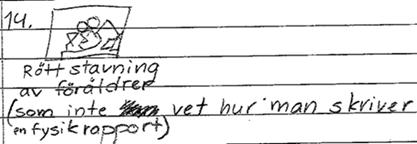 14.
Rättstavning
av föräldrer
(som inte vet hur man skriver
en fysikrapport)